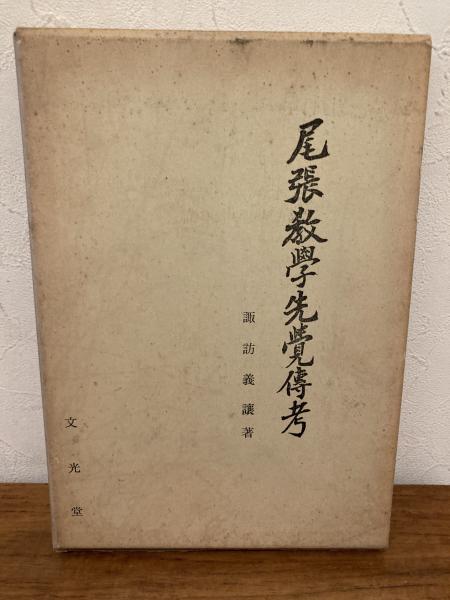 尾張教學先覺傳考
諏訪義讓著
文光堂